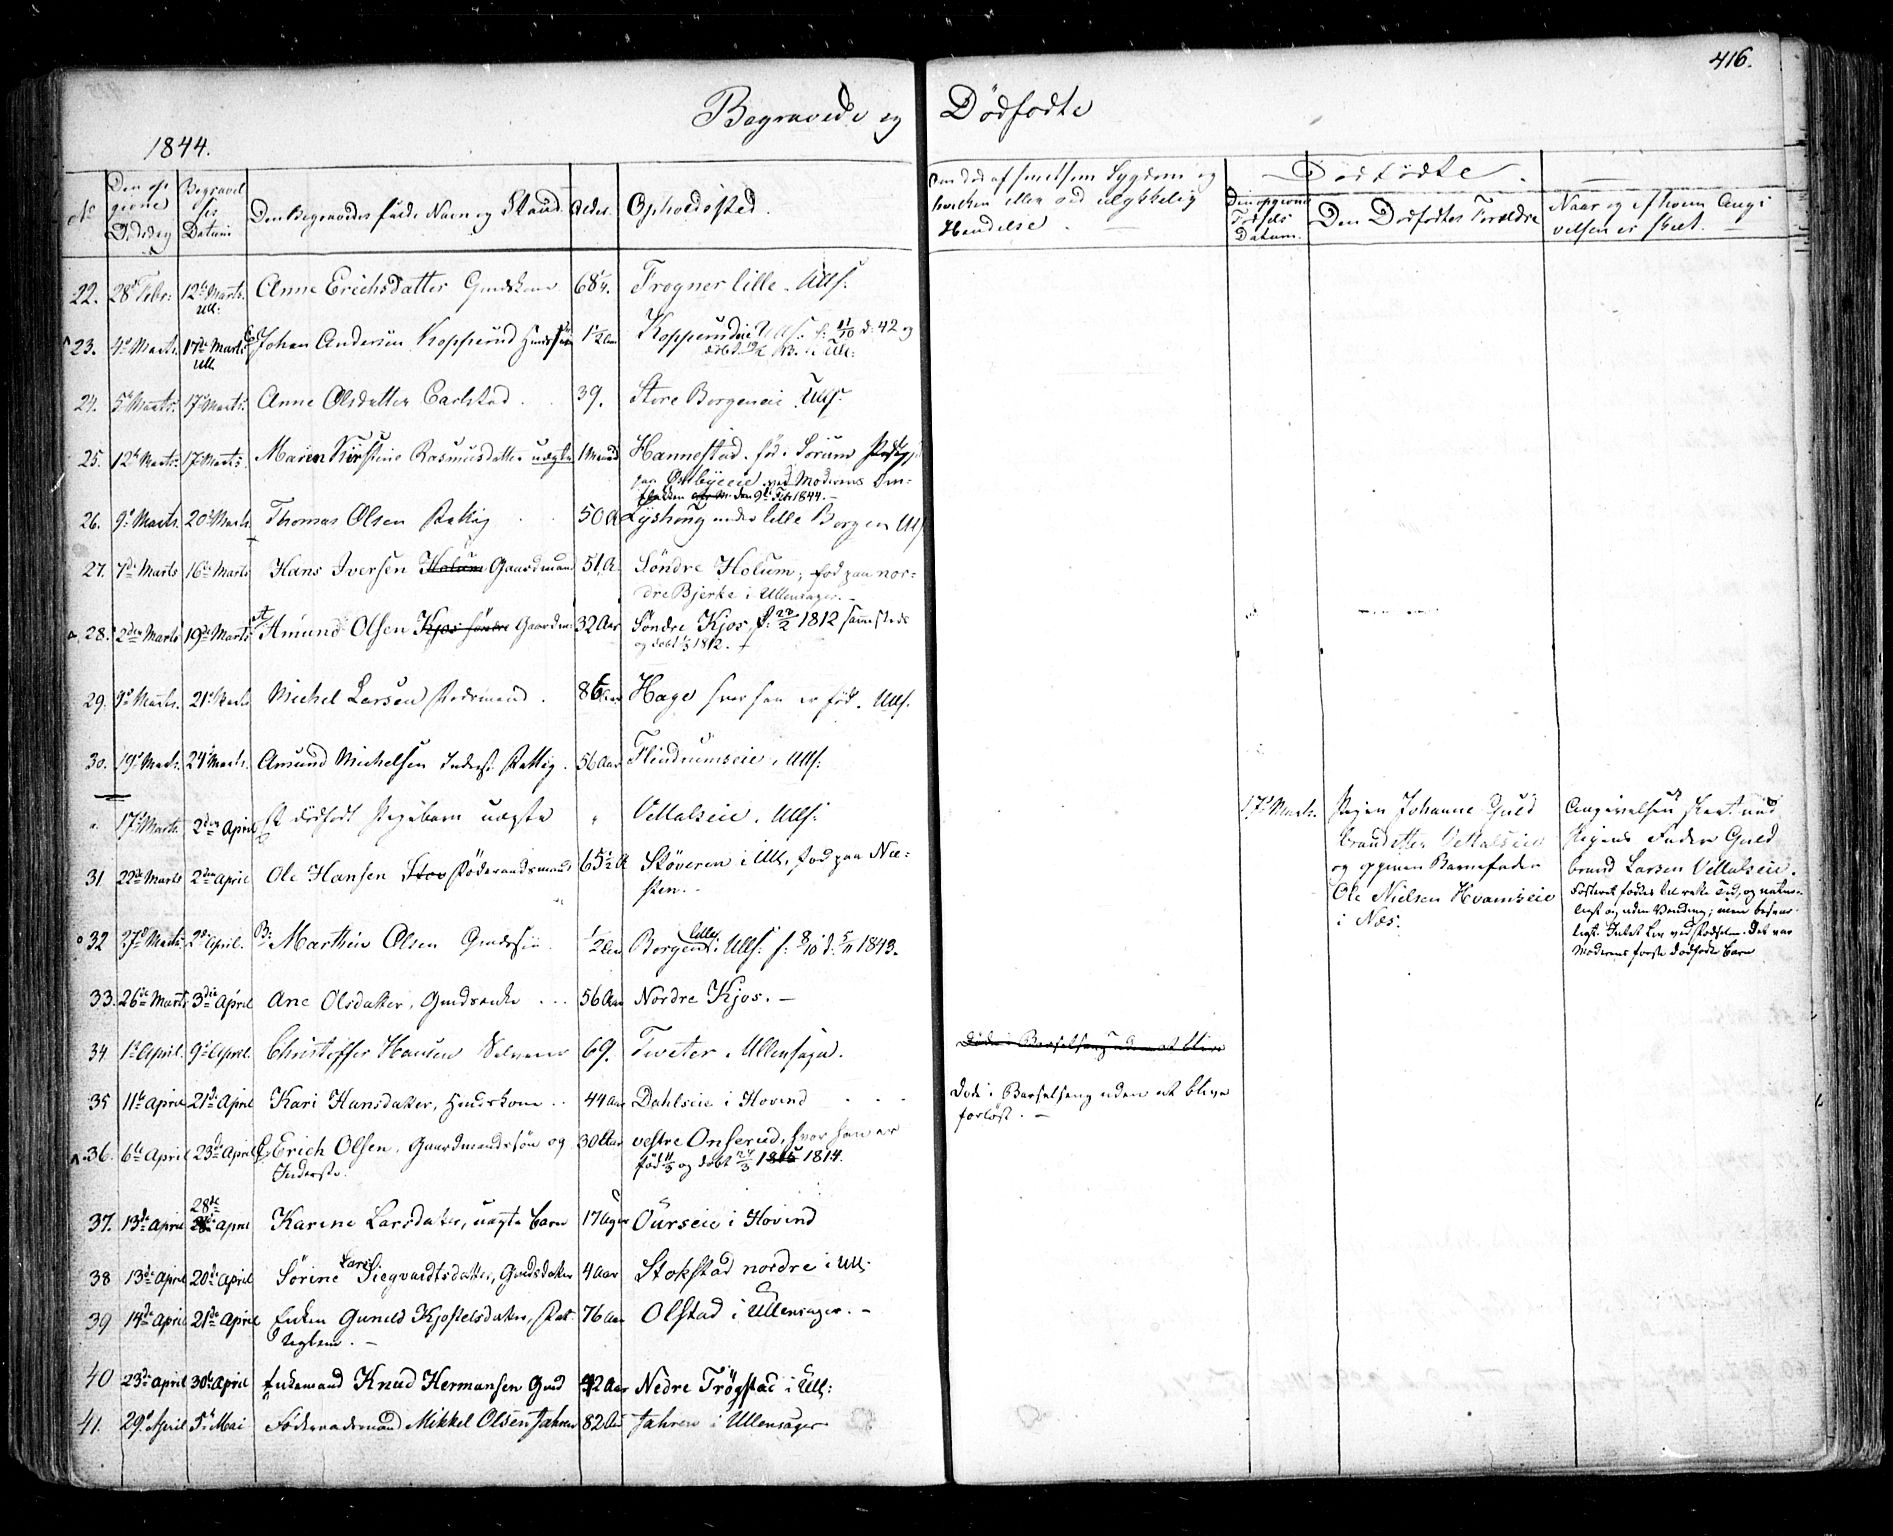 416.
Begravede og Dødfødte
1844.
No
Den opgivne Dødsdag
Begravelses Datum
Den Begravedes fulde Navn og Stand.
Alder.
Opholdssted.
Om død af smitsom Sygdom og hvilken eller ved ulykkelig Hendelse.
Dødfødte.
Den opgivne Fødsels Datum.
Den Dødfødtes Forældre
Naar og af hvem Angivelsen er skeet.
22. 28de Febr: 12te Marts. Ull: Anne Erichsdatter Gmdskone 68 Frogner lille. Ulls:
23. 4de Marts 17de Marts Ull. Johan Andersen Kopperud 1 1/2 Aar Kopperudeie Ulls: f: 11/10 d: 42 og
24. 5te Marts. 17de Marts. Anne Olsdatter Carlstad 39. Store Borgeneie Ulls.
25. 12te Marts. 17de Marts Maren Kirstine Rasmusdatter uægte 1 Maaned Hannestad. fød i Sørum
paa Østbyeeie ved Moderens
den 9de Feb 1844.
26. 9de Marts. 20de Marts Thomas Olsen 50 A Lyshoug under lille Borgen Ulls
27. 7de Marts 16de Marts Hans Iversen Holum Gaardmand 51 A. Søndre Holum, fød paa nor-
dre Bjerke i Ullensager.
28. 2den Marts 19de Marts Amund Olsen Kjos søndre Gaardm: 32 Aar Søndre Kjos, f: 27/2 1812 sammesteds
og døbt 1/3 1812.
29. 9de Marts. 21de Marts Michel Larsen 86 Aar Hage hvor han er fød. Ulls.
30. 19de Marts. 24de Marts. Amund Michelsen Inderst 56 Aar Flindrumseie, Ulls:
17de Marts 2den April Et dødfødt Pigebarn uægte " Vettalseie. Ulls:
17de Marts. Pigen Johanne Guld
brandsdatter Vettalseie
og opgiven Barnefader
Ole Nielsen Hvamseie
i Næs.
Angivelsen skeet ved
Pigens Fader Guld
brand Larsen Vettalseie.
Fosteret fødtes til rette Tid, og natur-
ligt og uden Vending; men besvær-
ligt. Intet Liv ved Fødselen. Det var
Moderens første dødfødte Barn
31 22de Marts 2den April Ole Hansen Stor Føderaadsmand 65 1/2 A Støveren i Ull, fød paa Næ-
sten.
32 27de Marts 2den April. Marthin Olsen Gmdssøn 1/2 Aar Borgen lille i Ulls: f: 8/10 d: 5/11 1843.
33. 26de Marts 3die April Ane Olsdatter, Gmdsenke 56 Aar Nordre Kjos.
34 1ste April. 9de April. Christoffer Hansen Selveier 69. Tveter i Ullensager.
Døde i Barselseng uden at blive
35 11te April 21de April Kari Hansdatter, Huuskone 44 Aar Dahlseie i Hovind
Døde i Barselseng uden at blive
forløst.
36. 6te April 23de April Erich Olsen, Gaardmandssøn og 30 Aar vestre Onserud, hvor han er
Inderste. fød 11/3 og døbt 27/3 1815 1814.
37. 13de April 28de April Karine Larsdatter, uægte Barn 17 Uger Ourseie i Hovind
38 13de April 20de April Sørine Lars. Siegvardtsdatter, Gmdsdatter 4 Aar Stokstad nordre i Ull:
39 14de April 21de April Enken Gunild Kjostelsdatter, 76 Aar Olstad i Ullensager.
40 23de April 30te April Enkemand Knud Hermansen Gmd 42 Aar Nedre Trøgstad i Ull:
41. 29de April 5te Mai Føderaadsmand Mikkel Olsen Jahren 82 Aar Jahren i Ullensager